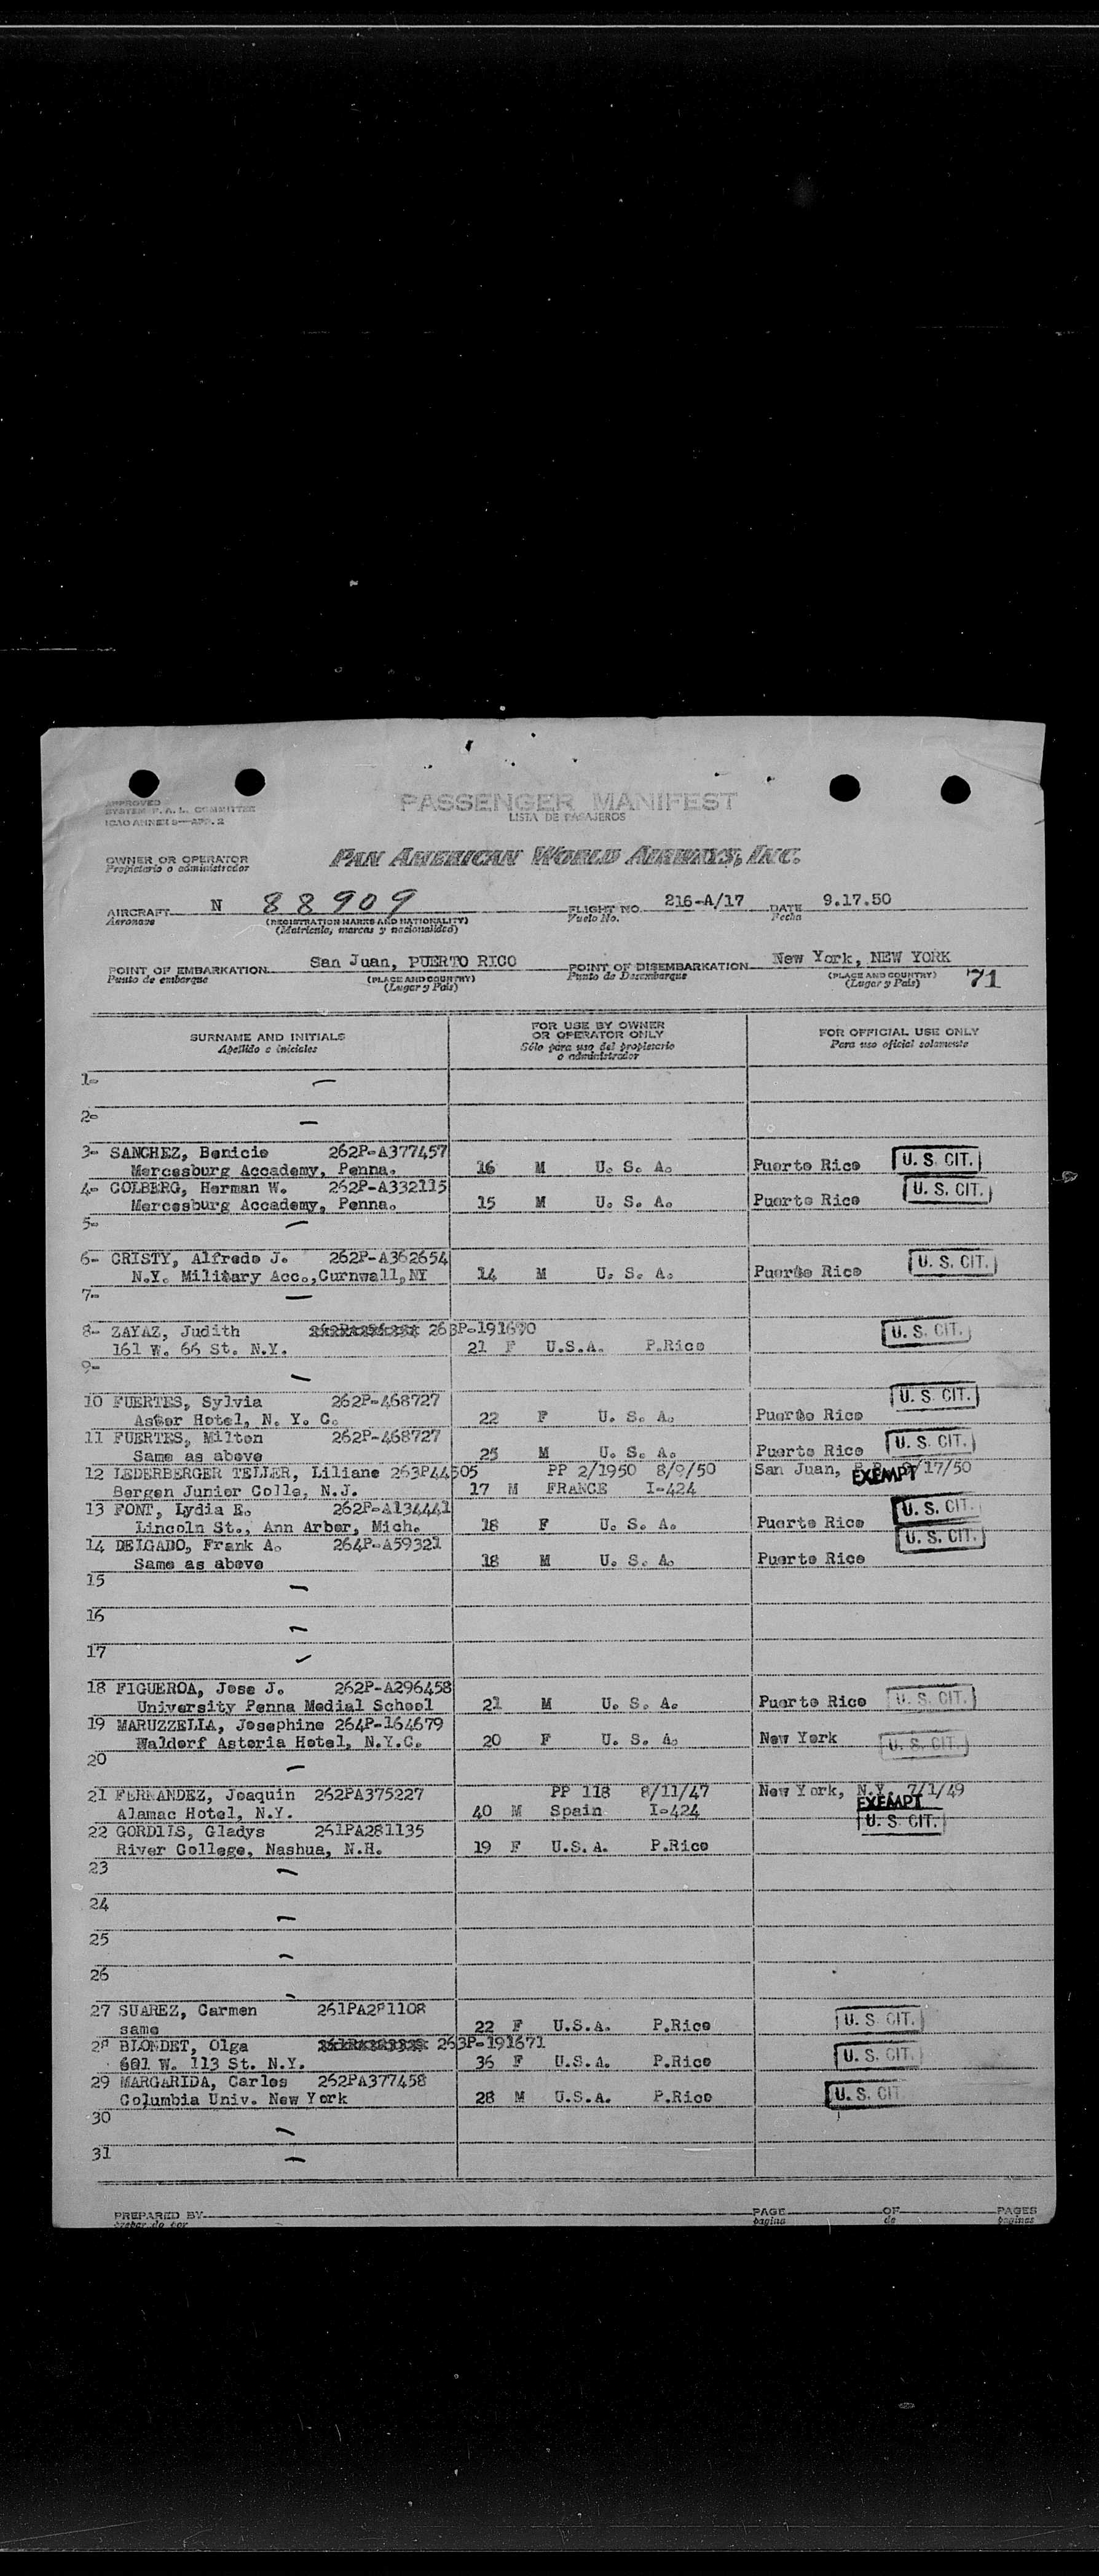 APPROVED
SYSTEM F. A. L. COMMITTEE
ICAO ANNEX 9—APP. 2
PASSENGER MANIFEST
LISTA DE PASAJEROS
OWNER OR OPERATOR
Propietario o administrador
PAN AMERICAN WORLD AIRWAYS, INC.
AIRCRAFT N 88909 FLIGHT NO. 216-A/17 DATE 9.17.50
Aeronave (REGISTRATION MARKS AND NATIONALITY) Vuelo No. Fecha
(Matricula, marcas y nacionalidad)
POINT OF EMBARKATION San Juan, PUERTO RICO POINT OF DISEMBARKATION New York, NEW YORK
Punto de embarque (PLACE AND COUNTRY) Punto de Desembarque (PLACE AND COUNTRY)
(Lugar y País) (Lugar y País) 71
SURNAME AND INITIALS FOR USE BY OWNER OR OPERATOR ONLY FOR OFFICIAL USE ONLY
Apellido e iniciales Sólo para uso del propietario o administrador Para uso oficial solamente
1- —
2- —
3- SANCHEZ, Benicio 262P-A377457
Mercesburg Accademy, Penna. 16 M U. S. A. Puerto Rico U. S. CIT.
4- COLBERG, Herman W. 262P-A332115
Mercesburg Accademy, Penna. 15 M U. S. A. Puerto Rico U. S. CIT.
5- —
6- CRISTY, Alfredo J. 262P-A362654
N.Y. Military Acc.,Curnwall,NY 14 M U. S. A. Puerto Rico U. S. CIT.
7- —
8- ZAYAZ, Judith 263P-191670
161 W. 66 St. N.Y. 21 F U.S.A. P.Rico U. S. CIT.
9- —
10 FUERTES, Sylvia 262P-468727
Astor Hotel, N. Y. C. 22 F U. S. A. Puerto Rico U. S. CIT.
11 FUERTES, Milton 262P-468727
Same as above 25 M U. S. A. Puerto Rico U. S. CIT.
12 LEDERBERGER TELLER, Liliane 263P44505 PP 2/1950 8/9/50 San Juan, /17/50
Bergen Junior Colle, N.J. 17 M FRANCE I-424 EXEMPT
13 FONT, Lydia E. 262P-A134441
Lincoln St., Ann Arbor, Mich. 18 F U. S. A. Puerto Rico U. S. CIT.
14 DELGADO, Frank A. 264P-A59321
Same as above 18 M U. S. A. Puerto Rico U. S. CIT.
15 —
16 —
17
18 FIGUEROA, Jose J. 262P-A296458
University Penna Medial School 21 M U. S. A. Puerto Rico U. S. CIT.
19 MARUZZELLA, Josephine 264P-164679
Waldorf Astoria Hotel, N.Y.C. 20 F U. S. A. New York U. S. CIT.
20 —
21 FERNANDEZ, Joaquin 262PA375227 PP 118 8/11/47 New York, N.Y. 7/1/49
Alamac Hotel, N.Y. 40 M Spain I-424 EXEMPT
22 GORDILS, Gladys 261PA281135 U. S. CIT.
River College, Nashua, N.H. 19 F U.S.A. P.Rico
23 —
24 —
25 —
26 —
27 SUAREZ, Carmen 261PA281108
same 22 F U.S.A. P.Rico U. S. CIT.
28 BLONDET, Olga 263P-191671
601 W. 113 St. N.Y. 36 F U.S.A. P.Rico U. S. CIT.
29 MARGARIDA, Carlos 262PA377458
Columbia Univ. New York 28 M U.S.A. P.Rico U. S. CIT
30 —
31 —
PREPARED BY PAGE OF PAGES
pagina de paginas